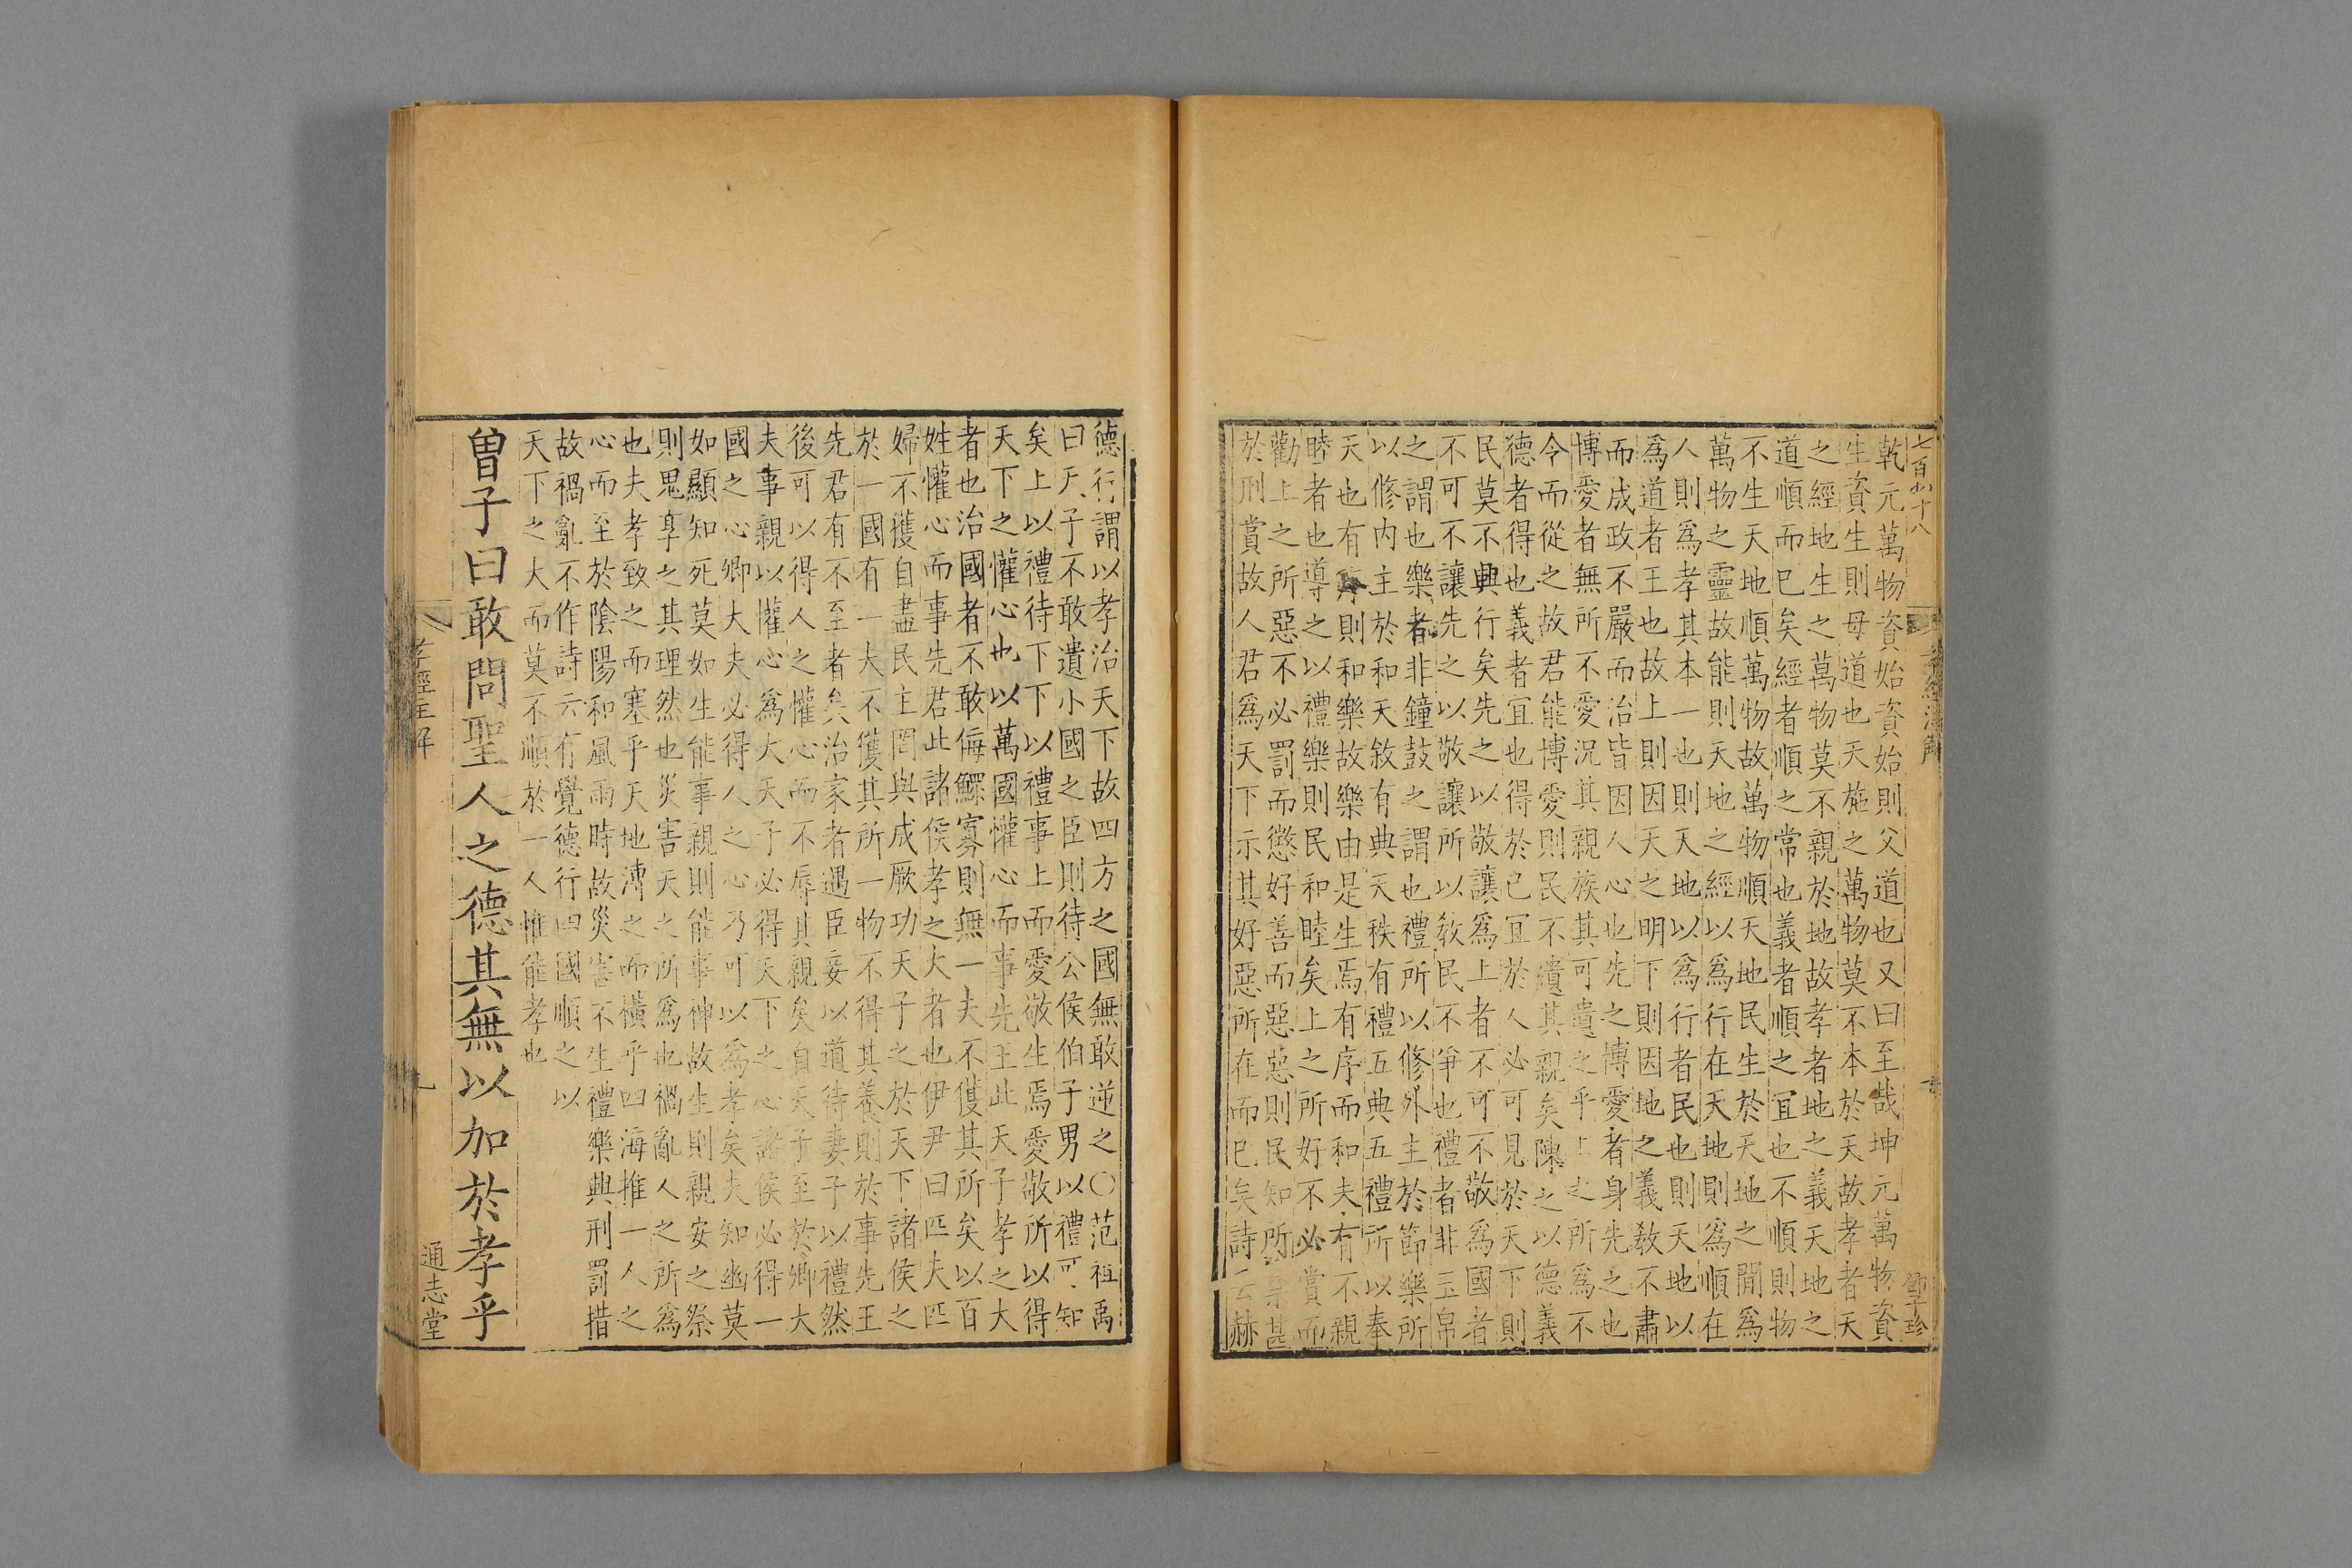 乾元萬物資始資始則父道也又曰至哉坤元萬物資
生資生則母道也天施之萬物莫不本於天故孝者天
之經地生之萬物莫不親於地故孝者地之義天地之
道順而已矣經者順之常也義者順之宜也不順則物
不生天地順萬物故萬物順天地民生於天地之間爲
萬物之靈故能則天地之經以爲行在天地則爲順在
人則爲孝其本一也則天地以爲行者民也則天地以
爲道者王也故上則因天之明下則因地之義敎不肅
而成政不嚴而治皆因人心也先之博愛者身先之也
博愛者無所不愛況其親族其可遺之乎上之所爲不
令而從之故君能博愛則民不遺其親矣陳之以德義
德者得也義者宜也得於已宜於人必可見於天下則
民莫不興行矣先之以敬讓爲上者不可不敬爲國者
不可不讓先之以敬讓所以敎民不爭也禮者非玉帛
之謂也樂者非鐘鼓之謂也禮所以修外主於節樂所
以修内主於和天敘有典天秩有禮五典五禮所以奉
天也有序則和樂故樂由是生焉有序而和夫有不親
睦者也導之以禮樂則民和睦矣上之所好不必賞而
勸上之所惡不必罰而懲好善而惡惡則民知所禁甚
於刑賞故人君爲天下示其好惡所在而已矣詩云赫
德行謂以孝治天下故四方之國無敢逆之○范祖禹
曰天子不敢遺小國之臣則待公侯伯子男以禮可知
矣上以禮待下下以禮事上而愛敬生焉愛敬所以得
天下之懽心也以萬國懽心而事先王此天子孝之大
者也治國者不敢侮鰥寡則無一夫不獲其所矣以百
姓懽心而事先君此諸侯孝之大者也伊尹曰匹夫匹
婦不獲自盡民主罔與成厥功天子之於天下諸侯之
於一國有一大不獲其所一物不得其養則於事先王
先君有不至者矣治家者遇臣妾以道待妻子以禮然
後可以得人之懽心而不辱其親矣自天子至於卿大
夫事親以懽心爲大天子必得天下之心諸侯必得一
國之心卿大夫必得人之心乃可以爲孝矣夫知幽莫
如顯知死莫如生能事親則能事神故生則親安之祭
則鬼享之其理然也災害天之所爲也禍亂人之所爲
也夫孝致之而塞乎天地溥之而橫乎四海推一人之
心而至於陰陽和風雨時故災害不生禮樂興刑罰措
故禍亂不作詩云有覺德行四國順之以
天下之大而莫不順於一人惟能孝也
曾子曰敢問聖人之德其無以加於孝乎
通志堂